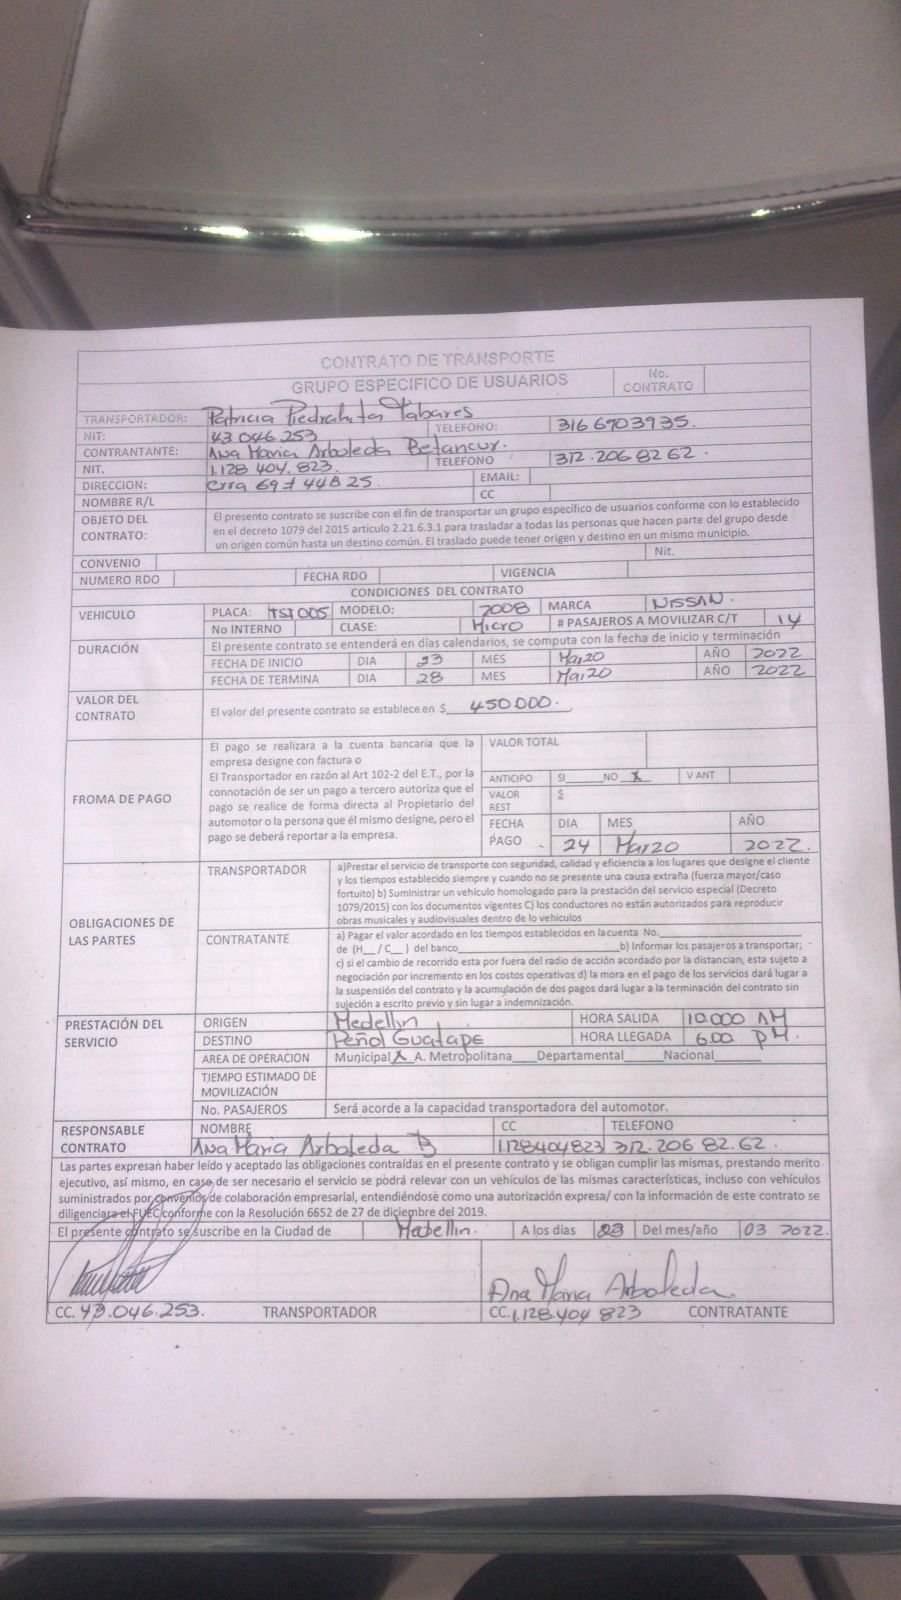 CONTRATO DE TRANSPORTE
GRUPO ESPECIFICO DE USUARIOS No. CONTRATO
TRANSPORTADOR: Patricia Piedrahita Tabares TELEFONO: 316 6903935.
NIT: 43.046.253
CONTRANTANTE: Ana Maria Arboleda Betancur. TELEFONO 312.206 82 62.
NIT. 1.128 404. 823.
DIRECCION: Crra 69 # 44B 25. EMAIL:
NOMBRE R/L CC
OBJETO DEL CONTRATO: El presento contrato se suscribe con el fin de transportar un grupo especifico de usuarios conforme con lo establecido
en el decreto 1079 del 2015 articulo 2.21.6.3.1 para trasladar a todas las personas que hacen parte del grupo desde
un origen común hasta un destino común. El traslado puede tener origen y destino en un mismo municipio.
CONVENIO Nit.
NUMERO RDO FECHA RDO VIGENCIA
CONDICIONES DEL CONTRATO
VEHICULO PLACA: 005 MODELO: 2008 MARCA NISSAN.
No INTERNO CLASE: Micro # PASAJEROS A MOVILIZAR C/T 14
DURACIÓN El presente contrato se entenderá en días calendarios, se computa con la fecha de inicio y terminación
FECHA DE INICIO DIA 23 MES Marzo AÑO 2022
FECHA DE TERMINA DIA 28 MES Marzo AÑO 2022
VALOR DEL CONTRATO El valor del presente contrato se establece en $ 450000.
FROMA DE PAGO
El pago se realizara a la cuenta bancaria que la
empresa designe con factura o
El Transportador en razón al Art 102-2 del E.T., por la
connotación de ser un pago a tercero autoriza que el
pago se realice de forma directa al Propietario del
automotor o la persona que él mismo designe, pero el
pago se deberá reportar a la empresa.
VALOR TOTAL
ANTICIPO SI NO X V ANT
VALOR REST $
FECHA PAGO DIA MES AÑO
24 Marzo 2022.
OBLIGACIONES DE LAS PARTES
TRANSPORTADOR a)Prestar el servicio de transporte con seguridad, calidad y eficiencia a los lugares que designe el cliente
y los tiempos establecido siempre y cuando no se presente una causa extraña (fuerza mayor/caso
fortuito) b) Suministrar un vehículo homologado para la prestación del servicio especial (Decreto
1079/2015) con los documentos vigentes C) los conductores no están autorizados para reproducir
obras musicales y audiovisuales dentro de lo vehiculos
CONTRATANTE a) Pagar el valor acordado en los tiempos establecidos en la cuenta No.
de (H__/ C__ ) del banco b) Informar los pasajeros a transportar;
c) si el cambio de recorrido esta por fuera del radio de acción acordado por la distancian, esta sujeto a
negociación por incremento en los costos operativos d) la mora en el pago de los servicios dará lugar a
la suspensión del contrato y la acumulación de dos pagos dará lugar a la terminación del contrato sin
sujeción a escrito previo y sin lugar a indemnización.
PRESTACIÓN DEL SERVICIO
ORIGEN Medellin HORA SALIDA 10.000 AM
DESTINO Peñol Guatape HORA LLEGADA 6.00 PM.
AREA DE OPERACION Municipal X A. Metropolitana Departamental Nacional
TIEMPO ESTIMADO DE MOVILIZACIÓN
No. PASAJEROS Será acorde a la capacidad transportadora del automotor.
RESPONSABLE CONTRATO NOMBRE CC TELEFONO
Ana Maria Arboleda B 1.128404823 312. 206 82.62.
Las partes expresan haber leído y aceptado las obligaciones contraídas en el presente contrato y se obligan cumplir las mismas, prestando merito
ejecutivo, así mismo, en caso de ser necesario el servicio se podrá relevar con un vehículos de las mismas características, incluso con vehículos
suministrados por convenios de colaboración empresarial, entendiéndose como una autorización expresa/ con la información de este contrato se
diligenciara el FUEC conforme con la Resolución 6652 de 27 de diciembre del 2019.
El presente contrato se suscribe en la Ciudad de A los días 23 Del mes/año 03 2022.
Ana Maria Arboleda.
CC. 43.046.253. TRANSPORTADOR CC. 1.128.404 823 CONTRATANTE